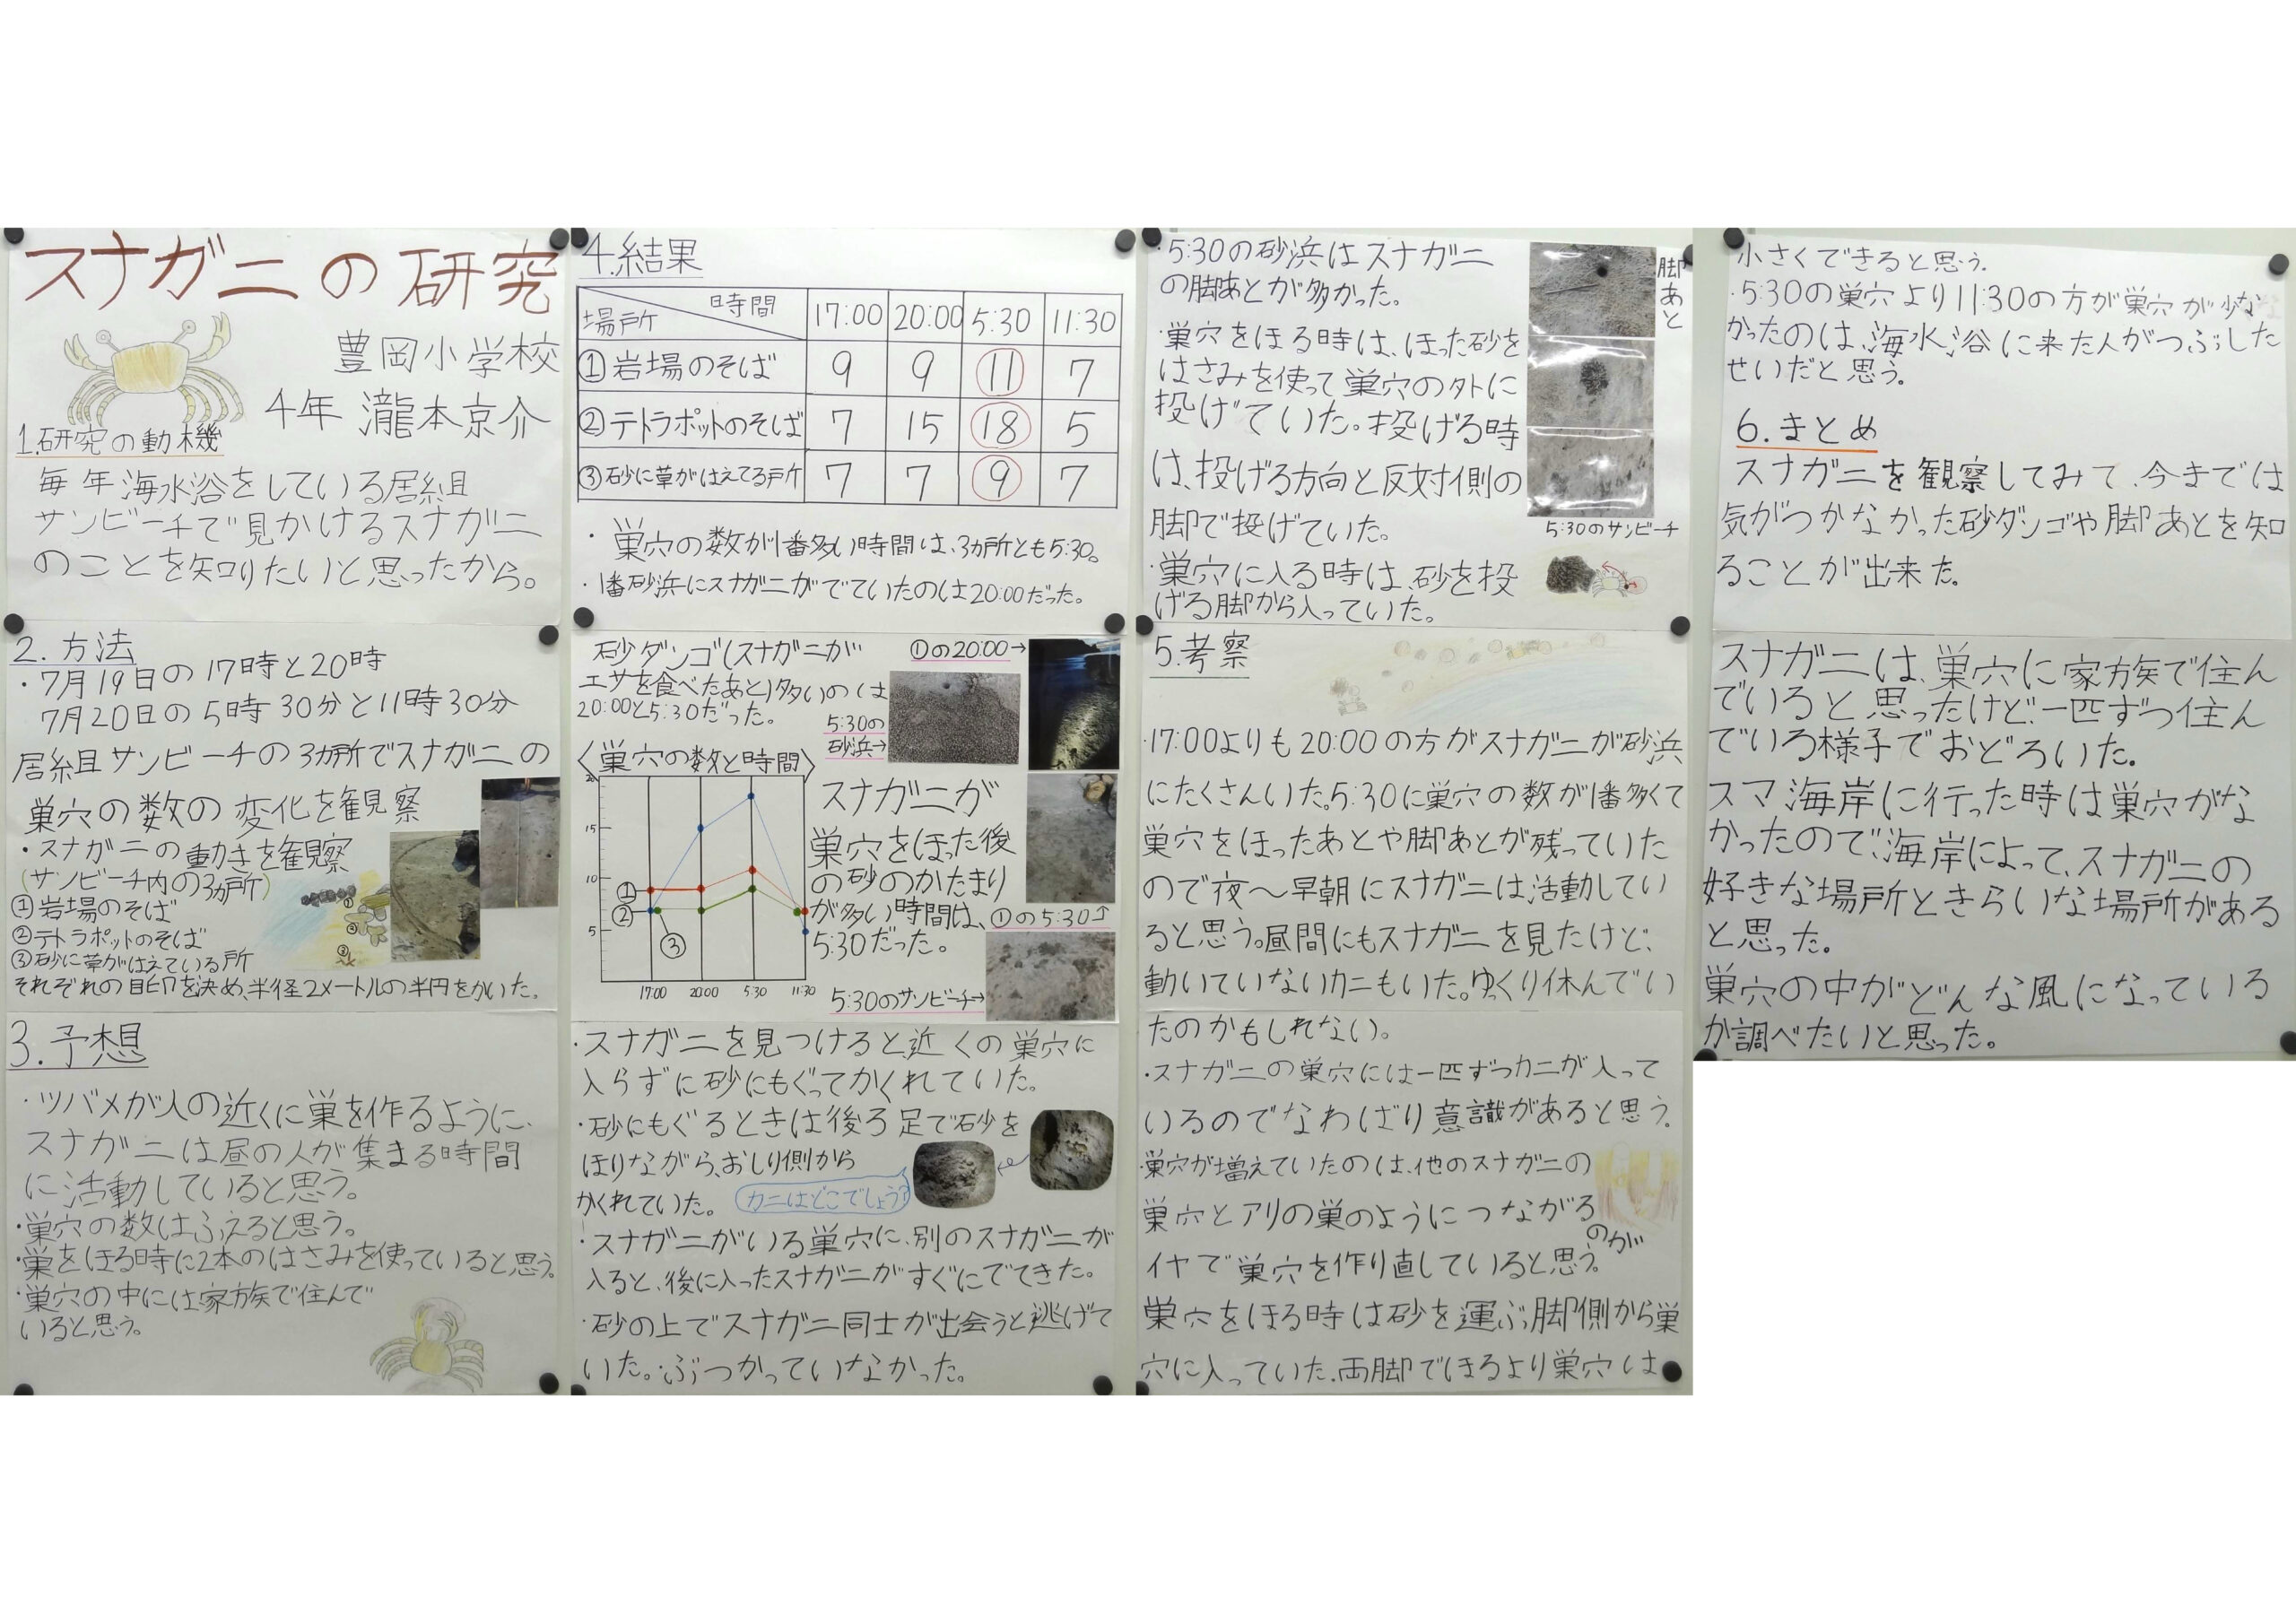 スナガニの研究
豊岡小学校
4年 瀧本京介
1.研究の動機
毎年海水浴をしている居組
サンビーチで見かけるスナガニ
のことを知りたいと思ったから。
2.方法
・7月19日の17時と20時
7月20日の5時30分と11時30分
居組サンビーチの3カ所でスナガニの
巣穴の数の変化を観察
・スナガニの動きを観察
(サンビーチ内の3カ所)
①岩場のそば
②テトラポットのそば
③砂に草がはえている所
それぞれの目印を決め、半径2メートルの半円をかいた。
①
②
③
3.予想
・ツバメが人の近くに巣を作るように、
スナガニは昼の人が集まる時間
に活動していると思う。
・巣穴の数はふえると思う。
・巣をほる時に2本のはさみを使っていると思う。
・巣穴の中には家族で住んで
いると思う。
4.結果
場所 時間 17:00 20:00 5:30 11:30
①岩場のそば 9 9 11 7
②テトラポットのそば 7 15 18 5
③砂に草がはえてる戸所 7 7 9 7
・巣穴の数が1番多い時間は、3カ所とも5:30。
・1番砂浜にスナガニがでていたのは20:00だった。
砂ダンゴ(スナガニが
エサを食べたあと)多いのは
20:00と5:30だった。
①の20:00→
5:30の
砂浜→
〈巣穴の数と時間〉
20
15
10
5
①
②
③
17:00 20:00 5:30 11:30
スナガニが
巣穴をほった後
の砂のかたまり
が多い時間は、
5:30だった。
①の5:30⇧
5:30のサンビーチ→
・スナガニを見つけると近くの巣穴に
入らずに砂にもぐってかくれていた。
・砂にもぐるときは後ろ足で砂を
ほりながら、おしり側から
かくれていた。
カニはどこでしょう?
・スナガニがいる巣穴に、別のスナガニが
入ると、後に入ったスナガニがすぐにでてきた。
・砂の上でスナガニ同士が出会うと逃げて
いた。ぶつかっていなかった。
・5:30の砂浜はスナガニ
の脚あとが多かった。
脚あと
・巣穴をほる時は、ほった砂を
はさみを使って巣穴の外に
投げていた。投げる時
は、投げる方向と反対側の
脚で投げていた。
5:30のサンビーチ
・巣穴に入る時は、砂を投
げる脚から入っていた。
5.考察
・17:00よりも20:00の方がスナガニが砂浜
にたくさんいた。5:30に巣穴の数が1番多くて
巣穴をほったあとや脚あとが残っていた
ので夜〜早朝にスナガニは活動してい
ると思う。昼間にもスナガニを見たけど、
動いていないカニもいた。ゆっくり休んでい
たのかもしれない。
・スナガニの巣穴には一匹ずつカニが入って
いるのでなわばり意識があると思う。
・巣穴が増えていたのは、他のスナガニの
巣穴とアリの巣のようにつながる
のが
イヤで巣穴を作り直していると思う。
巣穴をほる時は砂を運ぶ脚側から巣
穴に入っていた。両脚でほるより巣穴は
小さくできると思う。
・5:30の巣穴より11:30の方が巣穴が少な
かったのは、海水浴に来た人がつぶした
せいだと思う。
6.まとめ
スナガニを観察してみて、今までは
気がつかなかった砂ダンゴや脚あとを知
ることが出来た。
スナガニは、巣穴に家族で住ん
でいると思ったけど、一匹ずつ住ん
でいる様子でおどろいた。
スマ海岸に行った時は巣穴がな
かったので、海岸によって、スナガニの
好きな場所ときらいな場所がある
と思った。
巣穴の中がどんな風になっている
か調べたいと思った。